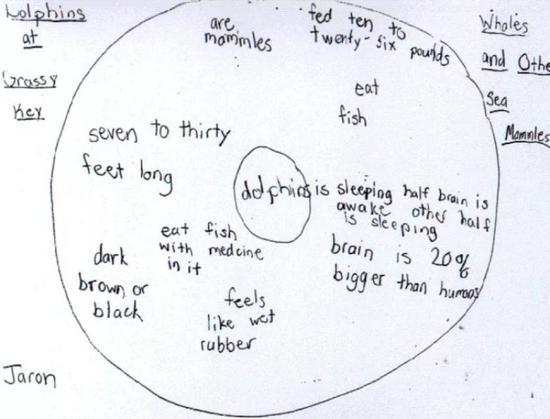 Dolphins
at
Grassy
Key
are
mammles
fed ten to
twenty-six pounds
Whales
and Othe
Sea
Mammles
eat
fish
seven to thirty
feet long
dolphins
is sleeping half brain is
awake other half
is sleeping
brain is 20%
bigger than humans
eat fish
with medcine
in it
dark
brown or
black
feels
like wet
rubber
Jaron